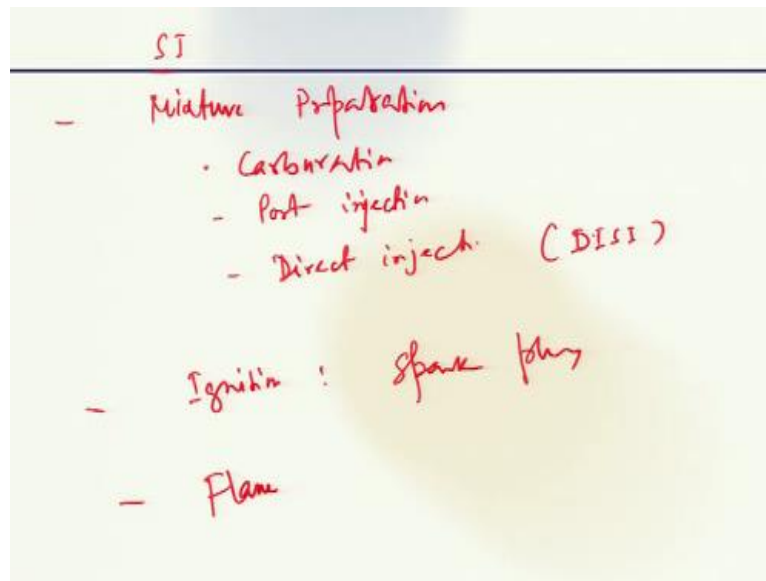 SI
- Mixture Preparation
· Carburation
- Port injection
- Direct inject. (DISI)
- Ignition : Spark plug
- Flame